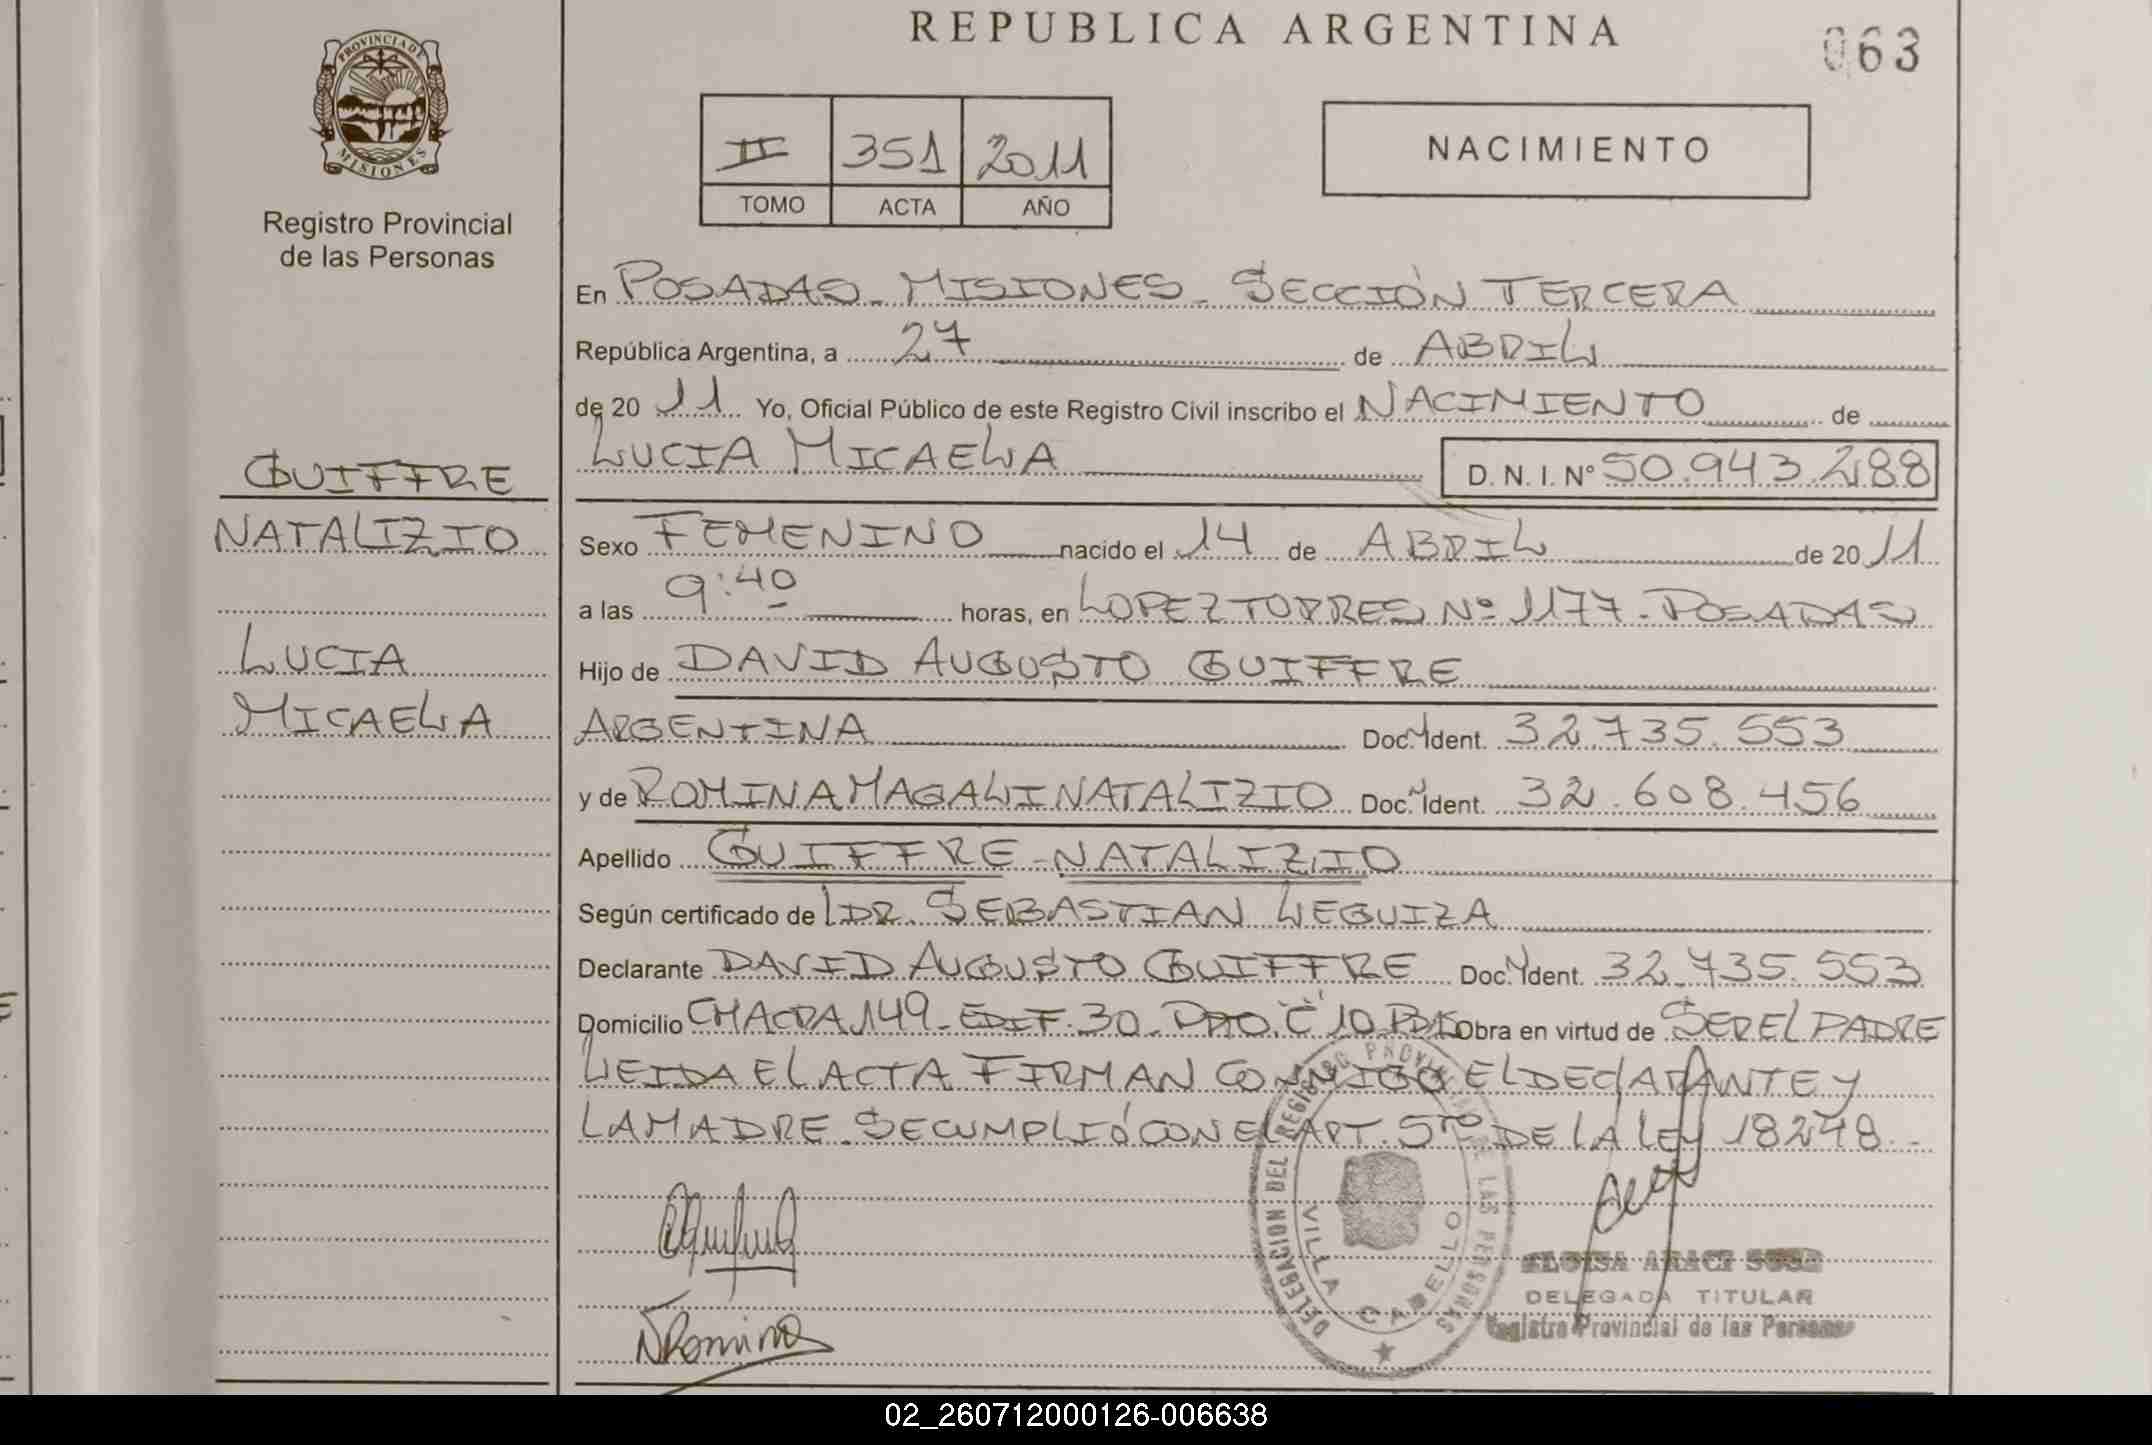 REPUBLICA ARGENTINA
063
PROVINCIA DE
MISIONES
Registro Provincial
de las Personas
II 351 2011
TOMO ACTA AÑO
NACIMIENTO
En POSADAS - MISIONES - SECCIÓN TERCERA
República Argentina, a 27 de ABRIL
de 20 11 Yo, Oficial Público de este Registro Civil inscribo el NACIMIENTO de
LUCIA MICAELA D. N. I. N° 50.943.288
GUIFFRE
NATALIZIO
LUCIA
MICAELA
Sexo FEMENINO nacido el 14 de ABRIL de 20 11
a las 9:40 horas, en LOPEZ TORRES Nº 1177 - POSADAS
Hijo de DAVID AUGUSTO GUIFFRE
ARGENTINA Doc. Ident. 32.735.553
y de ROMINA MAGALI NATALIZIO Doc. Ident. 32.608.456
Apellido GUIFFRE - NATALIZIO
Según certificado de DR. SEBASTIAN LEGUIZA
Declarante DAVID AUGUSTO GUIFFRE Doc. Ident. 32.735.553
Domicilio CHACRA 149 - EDIF. 30 - DPTO. "C" 10 Obra en virtud de SER EL PADRE
LEIDA EL ACTA FIRMAN CONMIGO EL DECLARANTE Y
LA MADRE. SE CUMPLIÓ CON EL ART. 5TO DE LA LEY 18248.-
DELEGACION DEL REGISTRO PROVINCIAL DE LAS PERSONAS
VILLA CABELLO
NRomina
ELOISA ARACI SOSA
DELEGADA TITULAR
Registro Provincial de las Personas
02_260712000126-006638